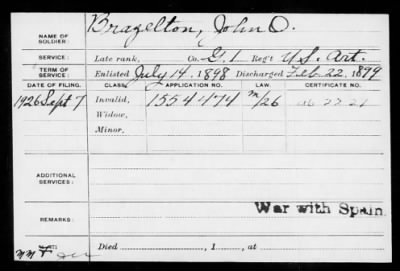 NAME OF SOLDIER: Brazelton, John O.
SERVICE: Late rank, Co. G. 1 Reg't U.S. Art.
TERM OF SERVICE: Enlisted July 14, 1898 Discharged Feb. 22, 1899
DATE OF FILING. CLASS. APPLICATION NO. LAW. CERTIFICATE NO.
1926 Sept 7 Invalid, 1554474 m/26
Widow,
Minor,
ADDITIONAL SERVICES:
War with Spain.
REMARKS:
Died , 1 , at